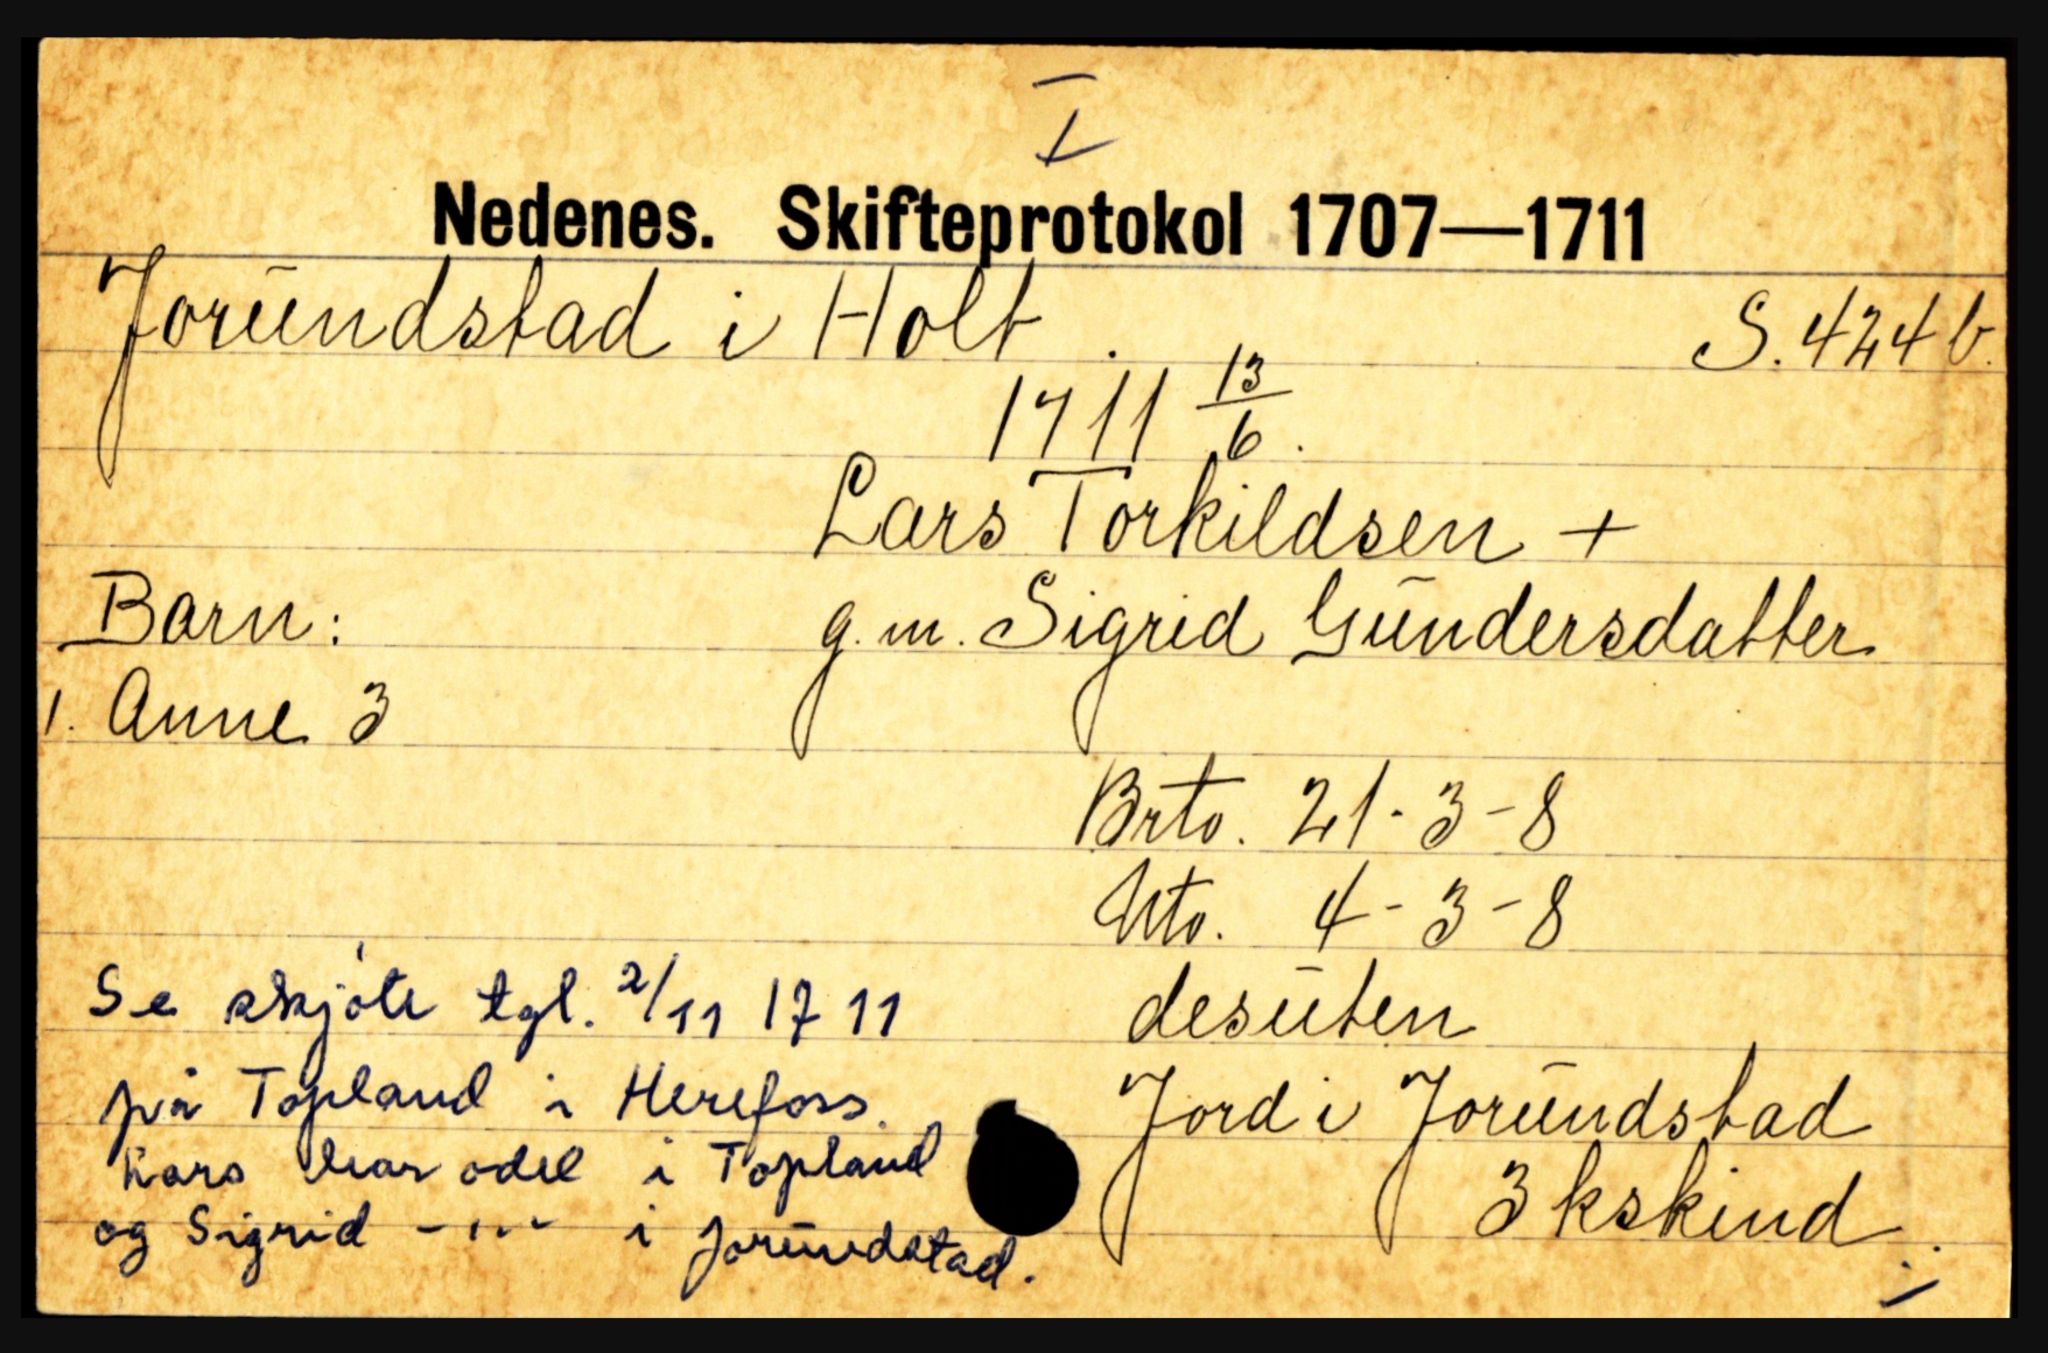 I
Nedenes. Skifteprotokol 1707—1711
Jorundstad i Holt. S. 424 b.
1711 13/6.
Lars Torkildsen +
Barn: g. m. Sigrid Gundersdatter
1. Anne 3
Brto. 21-3-8
Nto. 4-3-8
desuten
Jord i Jorundstad
3 kskind.
Se skjöte tgl. 2/11 1711
på Topland i Herefoss.
Lars har odel i Topland
og Sigrid -"- i Jorundstad.